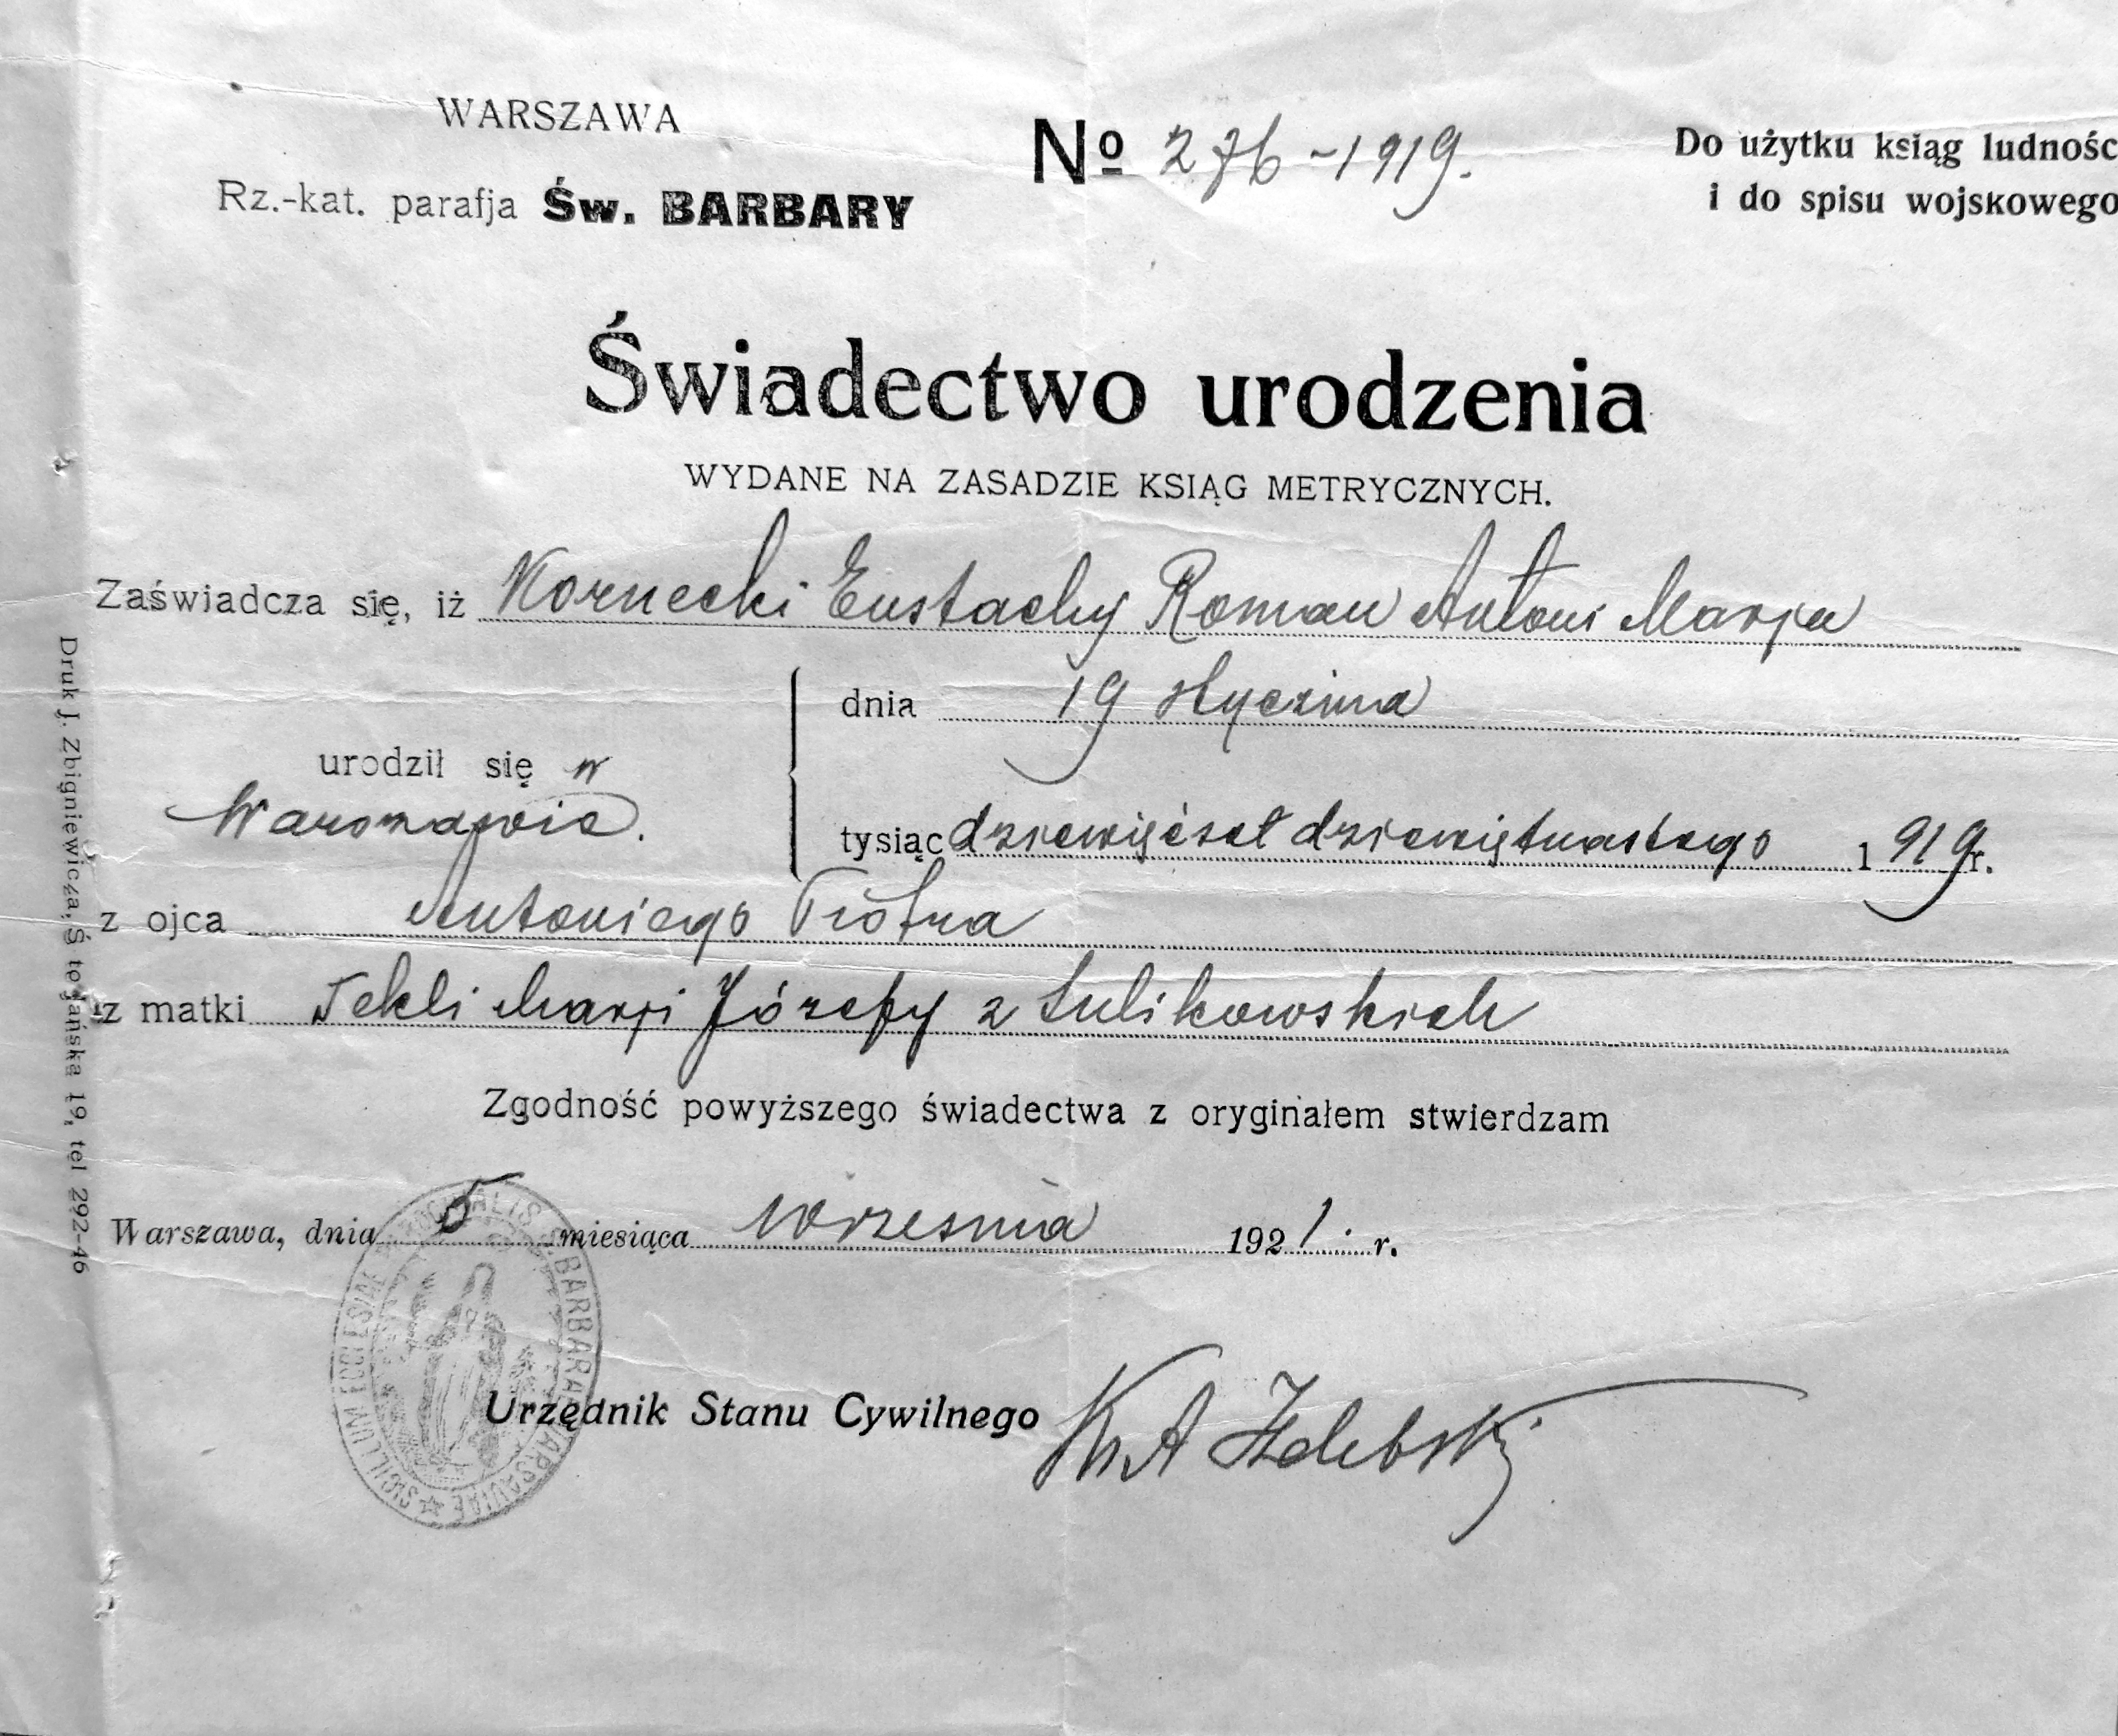 WARSZAWA
Rz.-kat. parafja Św. BARBARY
No 276-1919.
Do użytku ksiąg ludnośc
i do spisu wojskowego
Świadectwo urodzenia
WYDANE NA ZASADZIE KSIĄG METRYCZNYCH.
Zaświadcza się, iż Kornecki Eustachy Roman Antoni Marja
dnia 19 stycznia
urodził się w
Warszawie.
tysiąc dziewięćset dziewiętnastego 1919 r.
z ojca Antoniego Piotra
z matki Tekli Marji Józefy z Sulikowskich
Zgodność powyższego świadectwa z oryginałem stwierdzam
Warszawa, dnia 5 miesiąca Września 1921. r.
Urzędnik Stanu Cywilnego Ks A
SIGILLUM ECCLESIAE PAROCHIALIS S. BARBARAE VARSAVIAE
Druk J. Zbigniewicza, Ś-to Jańska 19, tel 292-46